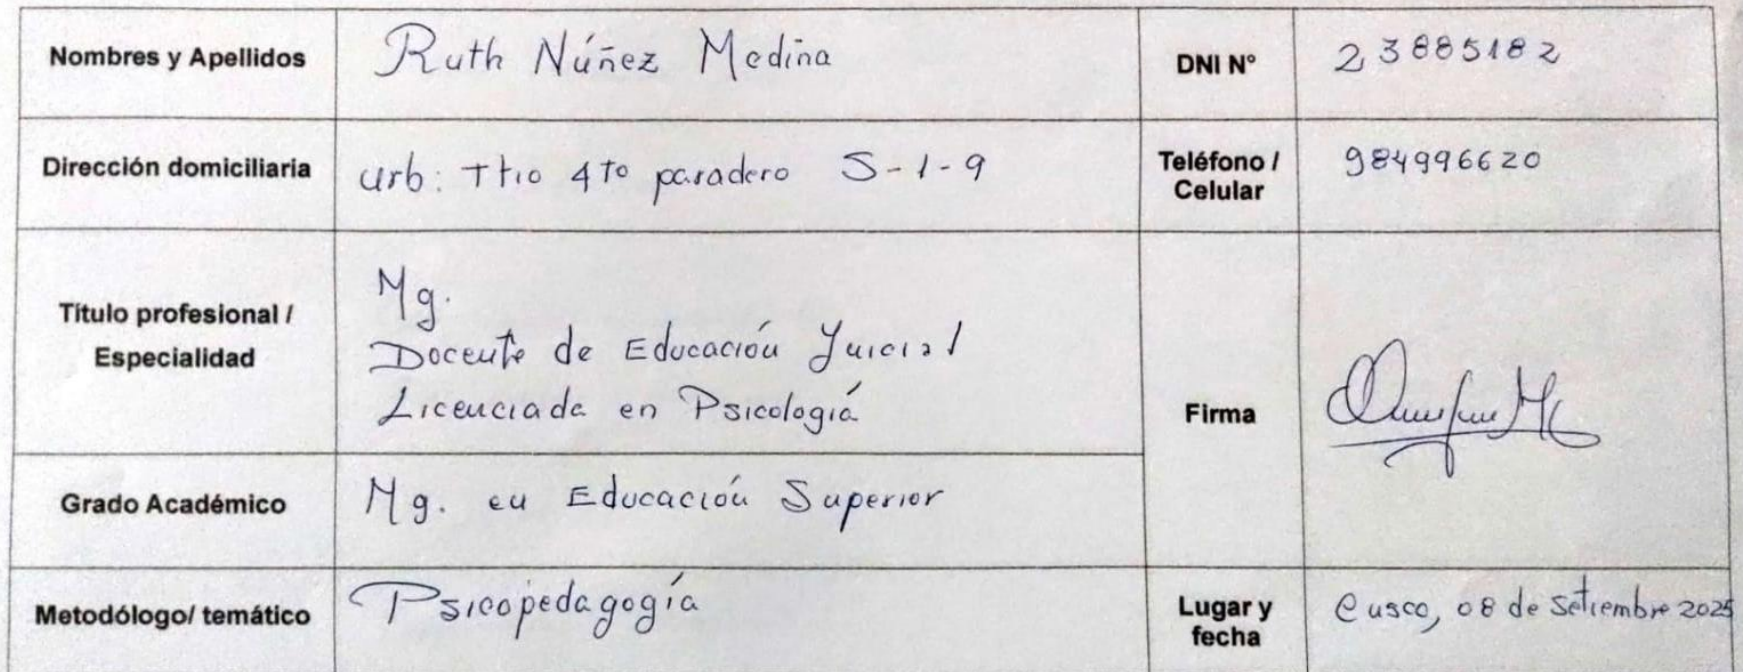 Nombres y Apellidos
Ruth Núñez Medina
DNI N°
23885182
Dirección domiciliaria
urb: Ttio 4to paradero S-1-9
Teléfono /
Celular
984996620
Título profesional /
Especialidad
Mg.
Docente de Educación Inicial
Licenciada en Psicología
Firma
Grado Académico
Mg. en Educación Superior
Metodólogo/ temático
Psicopedagogía
Lugar y
fecha
Cusco, 08 de Setiembre 2025